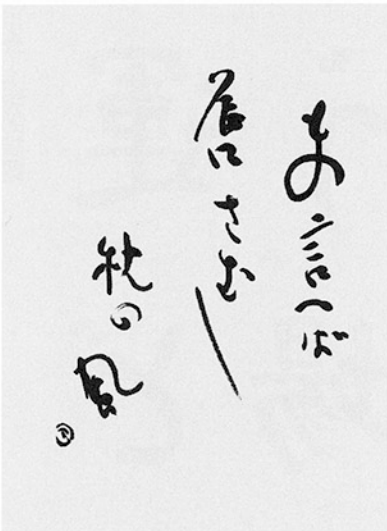 もの言へば
唇さむし
秋の風